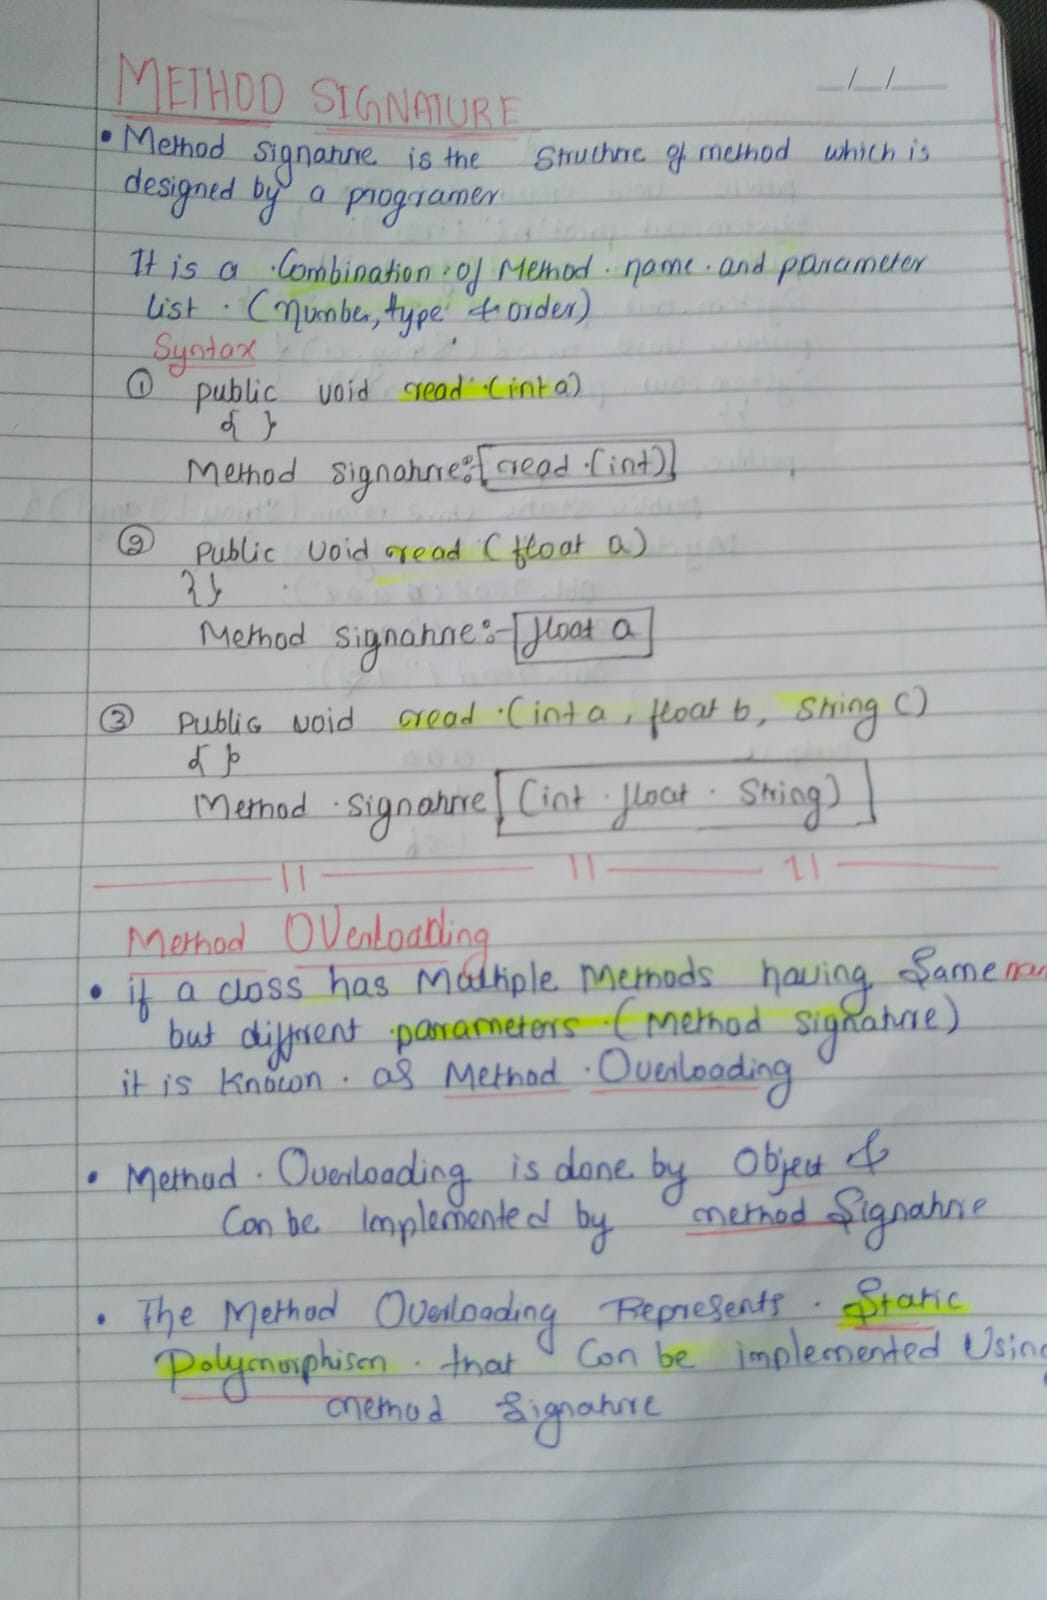 METHOD SIGNATURE
__/__/____
• Method signature is the structure of method which is
designed by a programer
It is a combination of Method name and parameter
list (number, type & order)
Syntax
① public void read (int a)
{ }
Method signature:[read (int)]
② Public void read (float a)
{}
Method signature:-[float a]
③ Public void read (int a, float b, String c)
{ }
Method signature [(int float String)]
|| || ||
Method Overloading
• if a class has Multiple Methods having Same
but different parameters (Method signature)
it is Known as Method Overloading
• Method Overloading is done by Object &
Can be Implemented by method Signature
• The Method Overloading Represents Static
Polymorphism that Can be implemented Using
method Signature